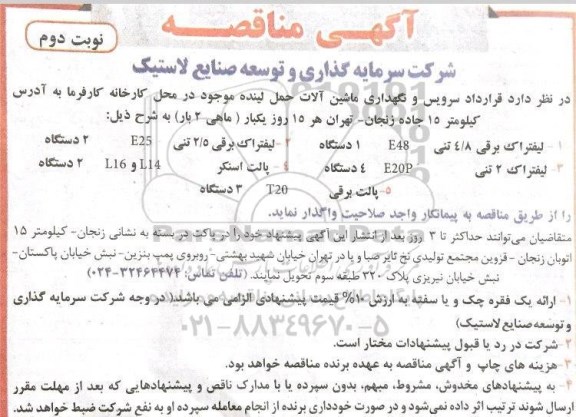 آگهی مناقصه
نوبت دوم
شرکت سرمایه گذاری و توسعه صنایع لاستیک
در نظر دارد قرارداد سرویس و نگهداری ماشین آلات حمل لیفت موجود در محل کارخانه کارفرما به آدرس
کیلومتر ۱۵ جاده زنجان- تهران هر ۱۵ روز یکبار ( ماهی ۲ بار) به شرح ذیل:
۱ - لیفتراک برقی ۴/۸ تنی E48 ۱ دستگاه ۲ -لیفتراک برقی ۲/۵ تنی E25 ۲ دستگاه
۳ - لیفتراک ۲ تنی E20P ۴ دستگاه ۴ - پالت استکر L14 و L16 ۲ دستگاه
۵-پالت برقی T20 ۳ دستگاه
را از طریق مناقصه به پیمانکار واجد صلاحیت واگذار نماید.
متقاضیان می‌توانند حداکثر تا ۳ روز بعد از انتشار این آگهی پیشنهاد خود را در پاکت در بسته به نشانی زنجان- کیلومتر ۱۵
اتوبان زنجان - قزوین مجتمع تولیدی نخ تایر صبا و یا در تهران خیابان شهید بهشتی- روبروی پمپ بنزین- نبش خیابان پاکستان-
نبش خیابان نیریزی پلاک ۳۲۰ طبقه سوم تحویل نمایند. (تلفن تماس: ۳۲۴۶۴۴۷۴-۰۲۴)
۱- ارائه یک فقره چک و یا سفته به ارزش ۱۰% قیمت پیشنهادی الزامی می باشد( در وجه شرکت سرمایه گذاری
و توسعه صنایع لاستیک)
۲-شرکت در رد یا قبول پیشنهادات مختار است.
۳-هزینه های چاپ و آگهی مناقصه به عهده برنده مناقصه خواهد بود.
۴- به پیشنهادهای مخدوش، مشروط، مبهم، بدون سپرده یا با مدارک ناقص و پیشنهادهایی که بعد از مهلت مقرر
ارسال شوند ترتیب اثر داده نمی‌شود و در صورت خودداری برنده از انجام معامله سپرده او به نفع شرکت ضبط خواهد شد.
ParsNamadData
۰۲۱-۸۸۳۴۹۶۷۰-۵